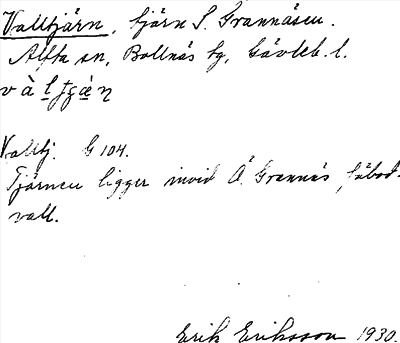 Valltjärn, tjärn S. Grannäsen.
Alfta sn, Bollnäs tg, Gävleb. l.
Valltj. G 104.
Tjärnen ligger invid Å. Grannäs fäbod-
vall.
Erik Eriksson 1930.